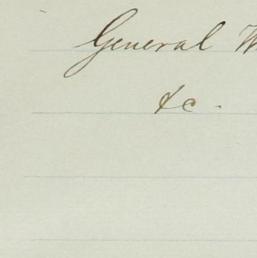 General W
&c.